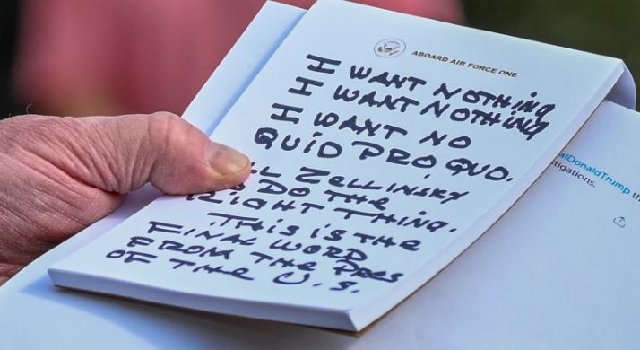 ABOARD AIR FORCE ONE
I WANT NOTHING
I WANT NOTHING
I WANT NO
QUID PRO QUO.
LL ZELLINSKY
O DO THE
RIGHT THING.
THIS IS THE
FINAL WORD
FROM THE PRES
OF THE U.S.
alDonaldTrump
tigations.